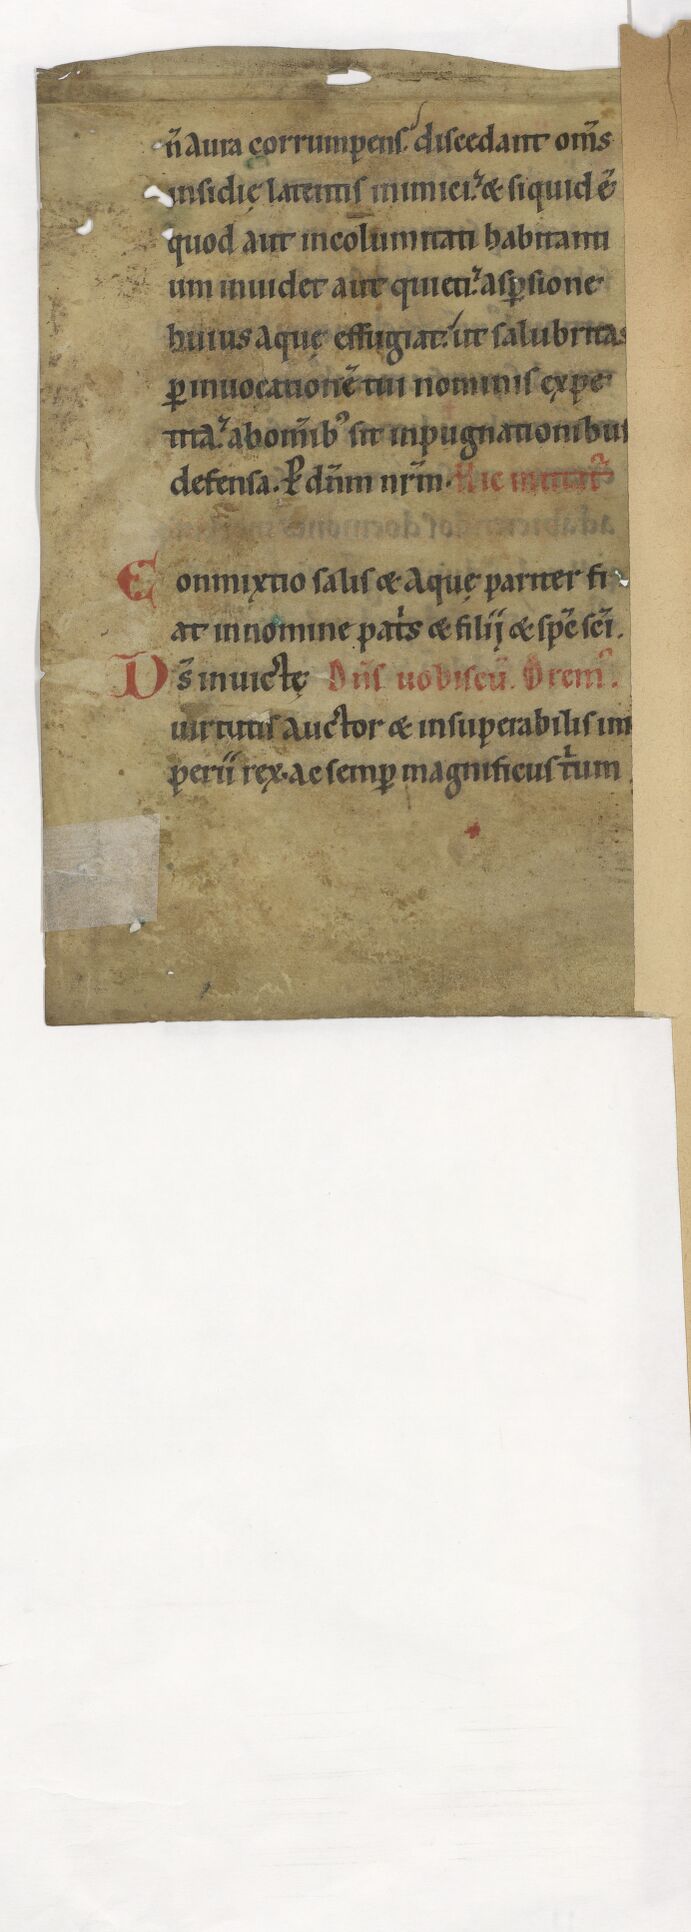 n̄ aura corrumpens. discedant om̄s
insidię latentis inimici. & siquid ē
quod aut incolumitati habitanti
um inuidet aut quieti. asꝑsione
huius aquę effugiat. ut salubritas
ꝑ inuocationē tui nominis expe
tita. ab omīb᾽ sit inpugnationibus
defensa. P dn̄m nr̄m. Hic mittat᾽
Conmixtio salis & aquę pariter fi
at in nomine pat̄s & filii & sp̄c sc̄i.
Ds̄ inuictę Dn̄s uobiscū. Orem᾽.
uirtutis auctor & insuperabilis im
perii rex. ac semꝑ magnificus t̄um